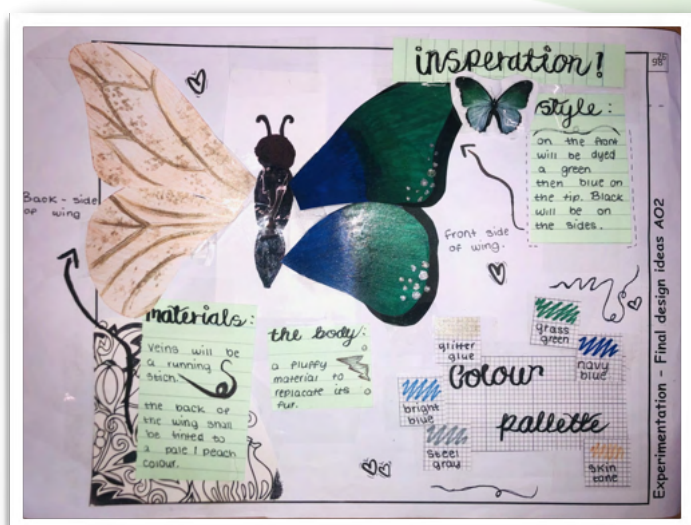 insperation!
98
style:
on the front
will be dyed
a green
then blue on
the tip. Black
will be on
the sides.
Back-side
of wing
front side
of wing.
materials:
veins will be
a running
stich.
the back of
the wing shall
be
to
a pale / peach
colour.
the body:
a fluffy
material to
replacate its
fur.
glitter
glue
grass
green
navy
blue
bright
blue
steel
gray
skin
tone
Colour
pallette
Experimentation - Final design ideas AO2